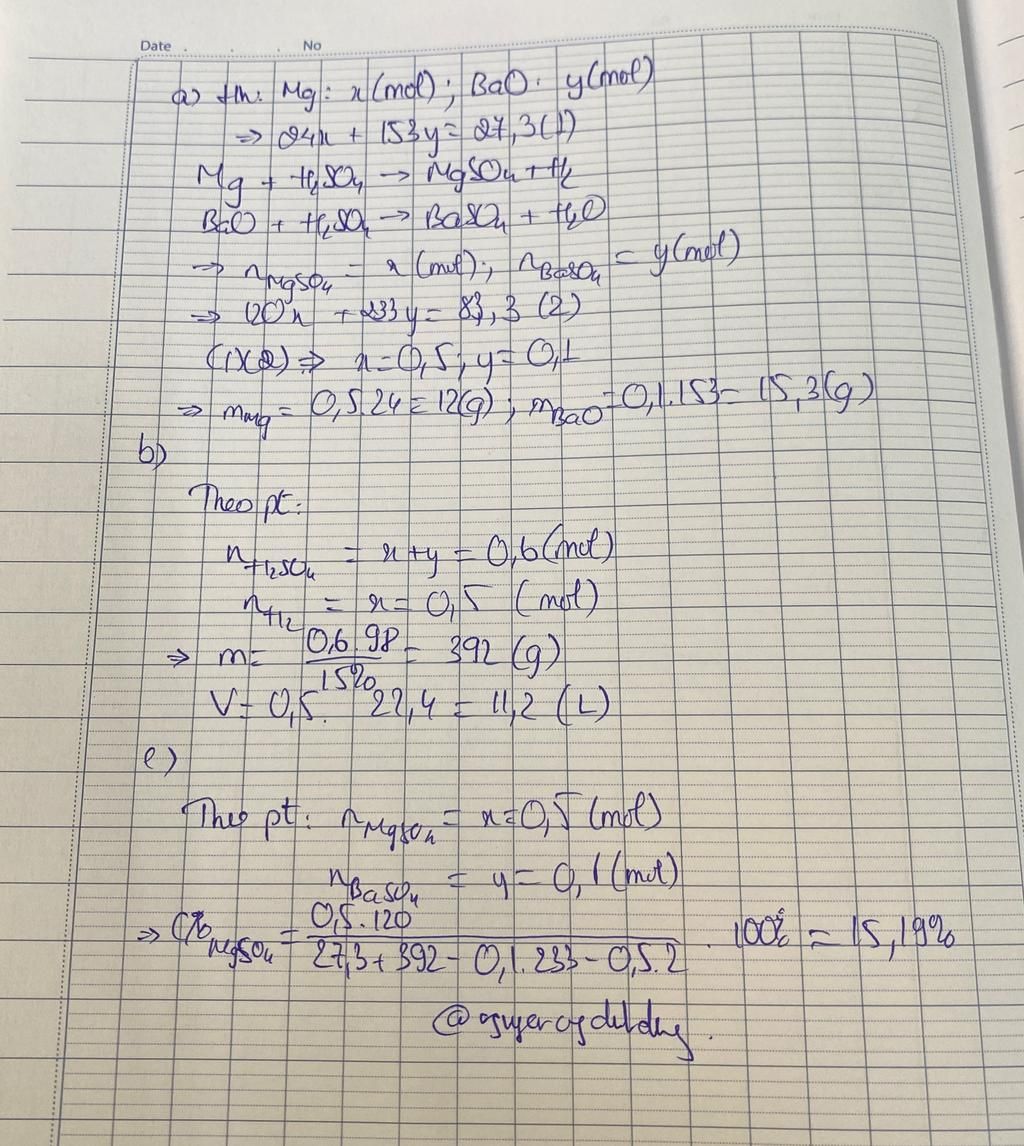 Date . . . No
a) Mg: x (mol); BaO: y (mol)
⇒ 24x + 153y = 27,3 (1)
Mg + H₂SO₄ → MgSO₄ + H₂
BaO + H₂SO₄ → BaSO₄ + H₂O
→ n_MgSO₄ = x (mol); n_BaSO₄ = y (mol)
⇒ 120x + 233y = 83,3 (2)
(1)(2) ⇒ x = 0,5; y = 0,1
⇒ m_Mg = 0,5.24 = 12(g); m_BaO = 0,1.153 = 15,3(g)
b)
Theo pt:
n_H₂SO₄ = x + y = 0,6 (mol)
n_H₂ = x = 0,5 (mol)
⇒ m = 0,6.98 / 15% = 392 (g)
V = 0,5. 22,4 = 11,2 (L)
c)
Theo pt: n_MgSO₄ = x = 0,5 (mol)
n_BaSO₄ = y = 0,1 (mol)
⇒ C%_MgSO₄ = 0,5.120 / 27,3 + 392 - 0,1.233 - 0,5.2 . 100% = 15,19%